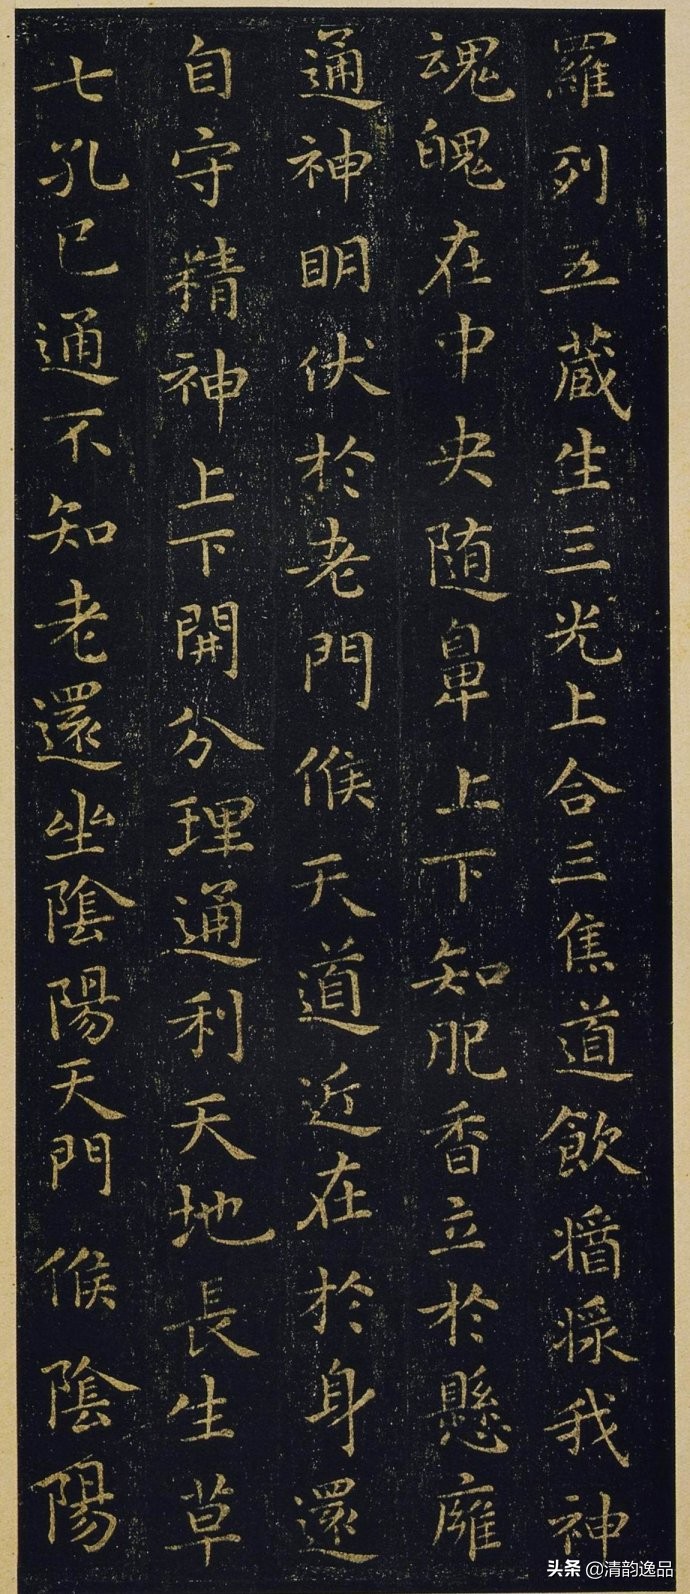 羅列五蔵生三光上合三焦道飲
我神
魂魄在中央随鼻上下知肥香立於懸廱
通神明伏於老門候天道近在於身還
自守精神上下開分理通利天地長生草
七孔已通不知老還坐陰陽天門候陰陽
头条 @清韵逸品